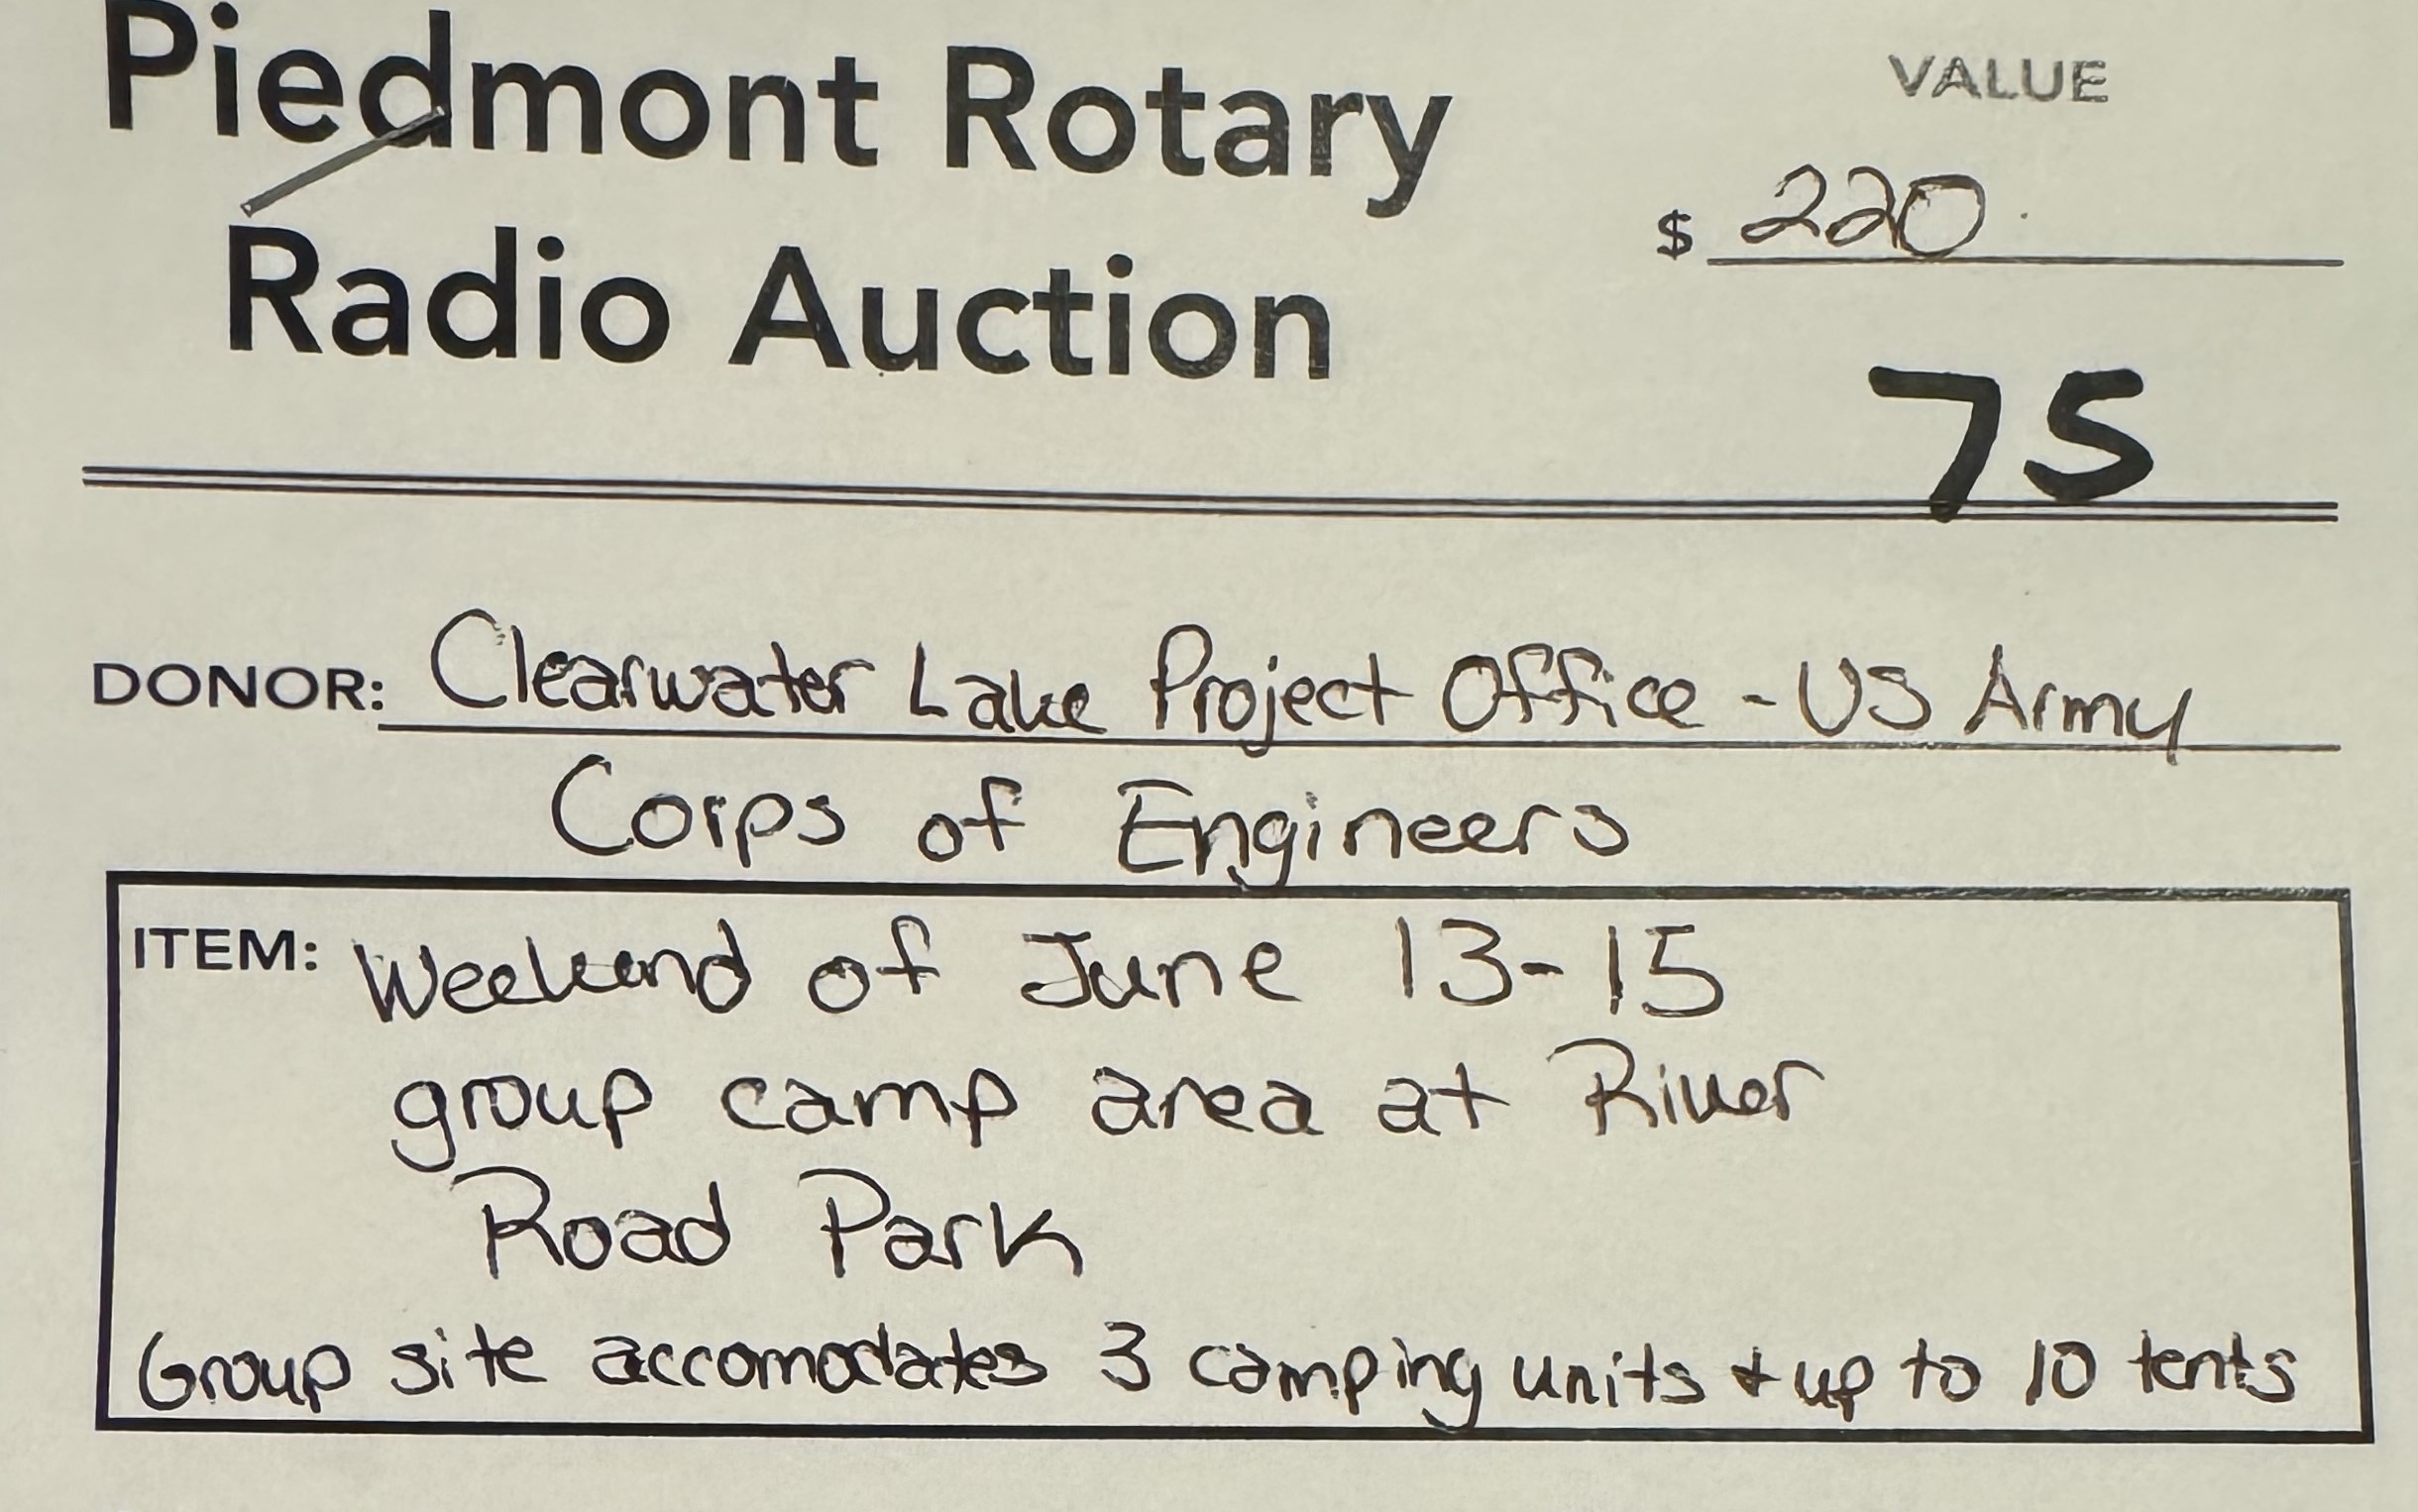 Piedmont Rotary
Radio Auction
VALUE
$ 220
75
DONOR: Clearwater Lake Project Office - US Army
Corps of Engineers
ITEM: Weekend of June 13-15
group camp area at River
Road Park
Group site accomodates 3 camping units + up to 10 tents